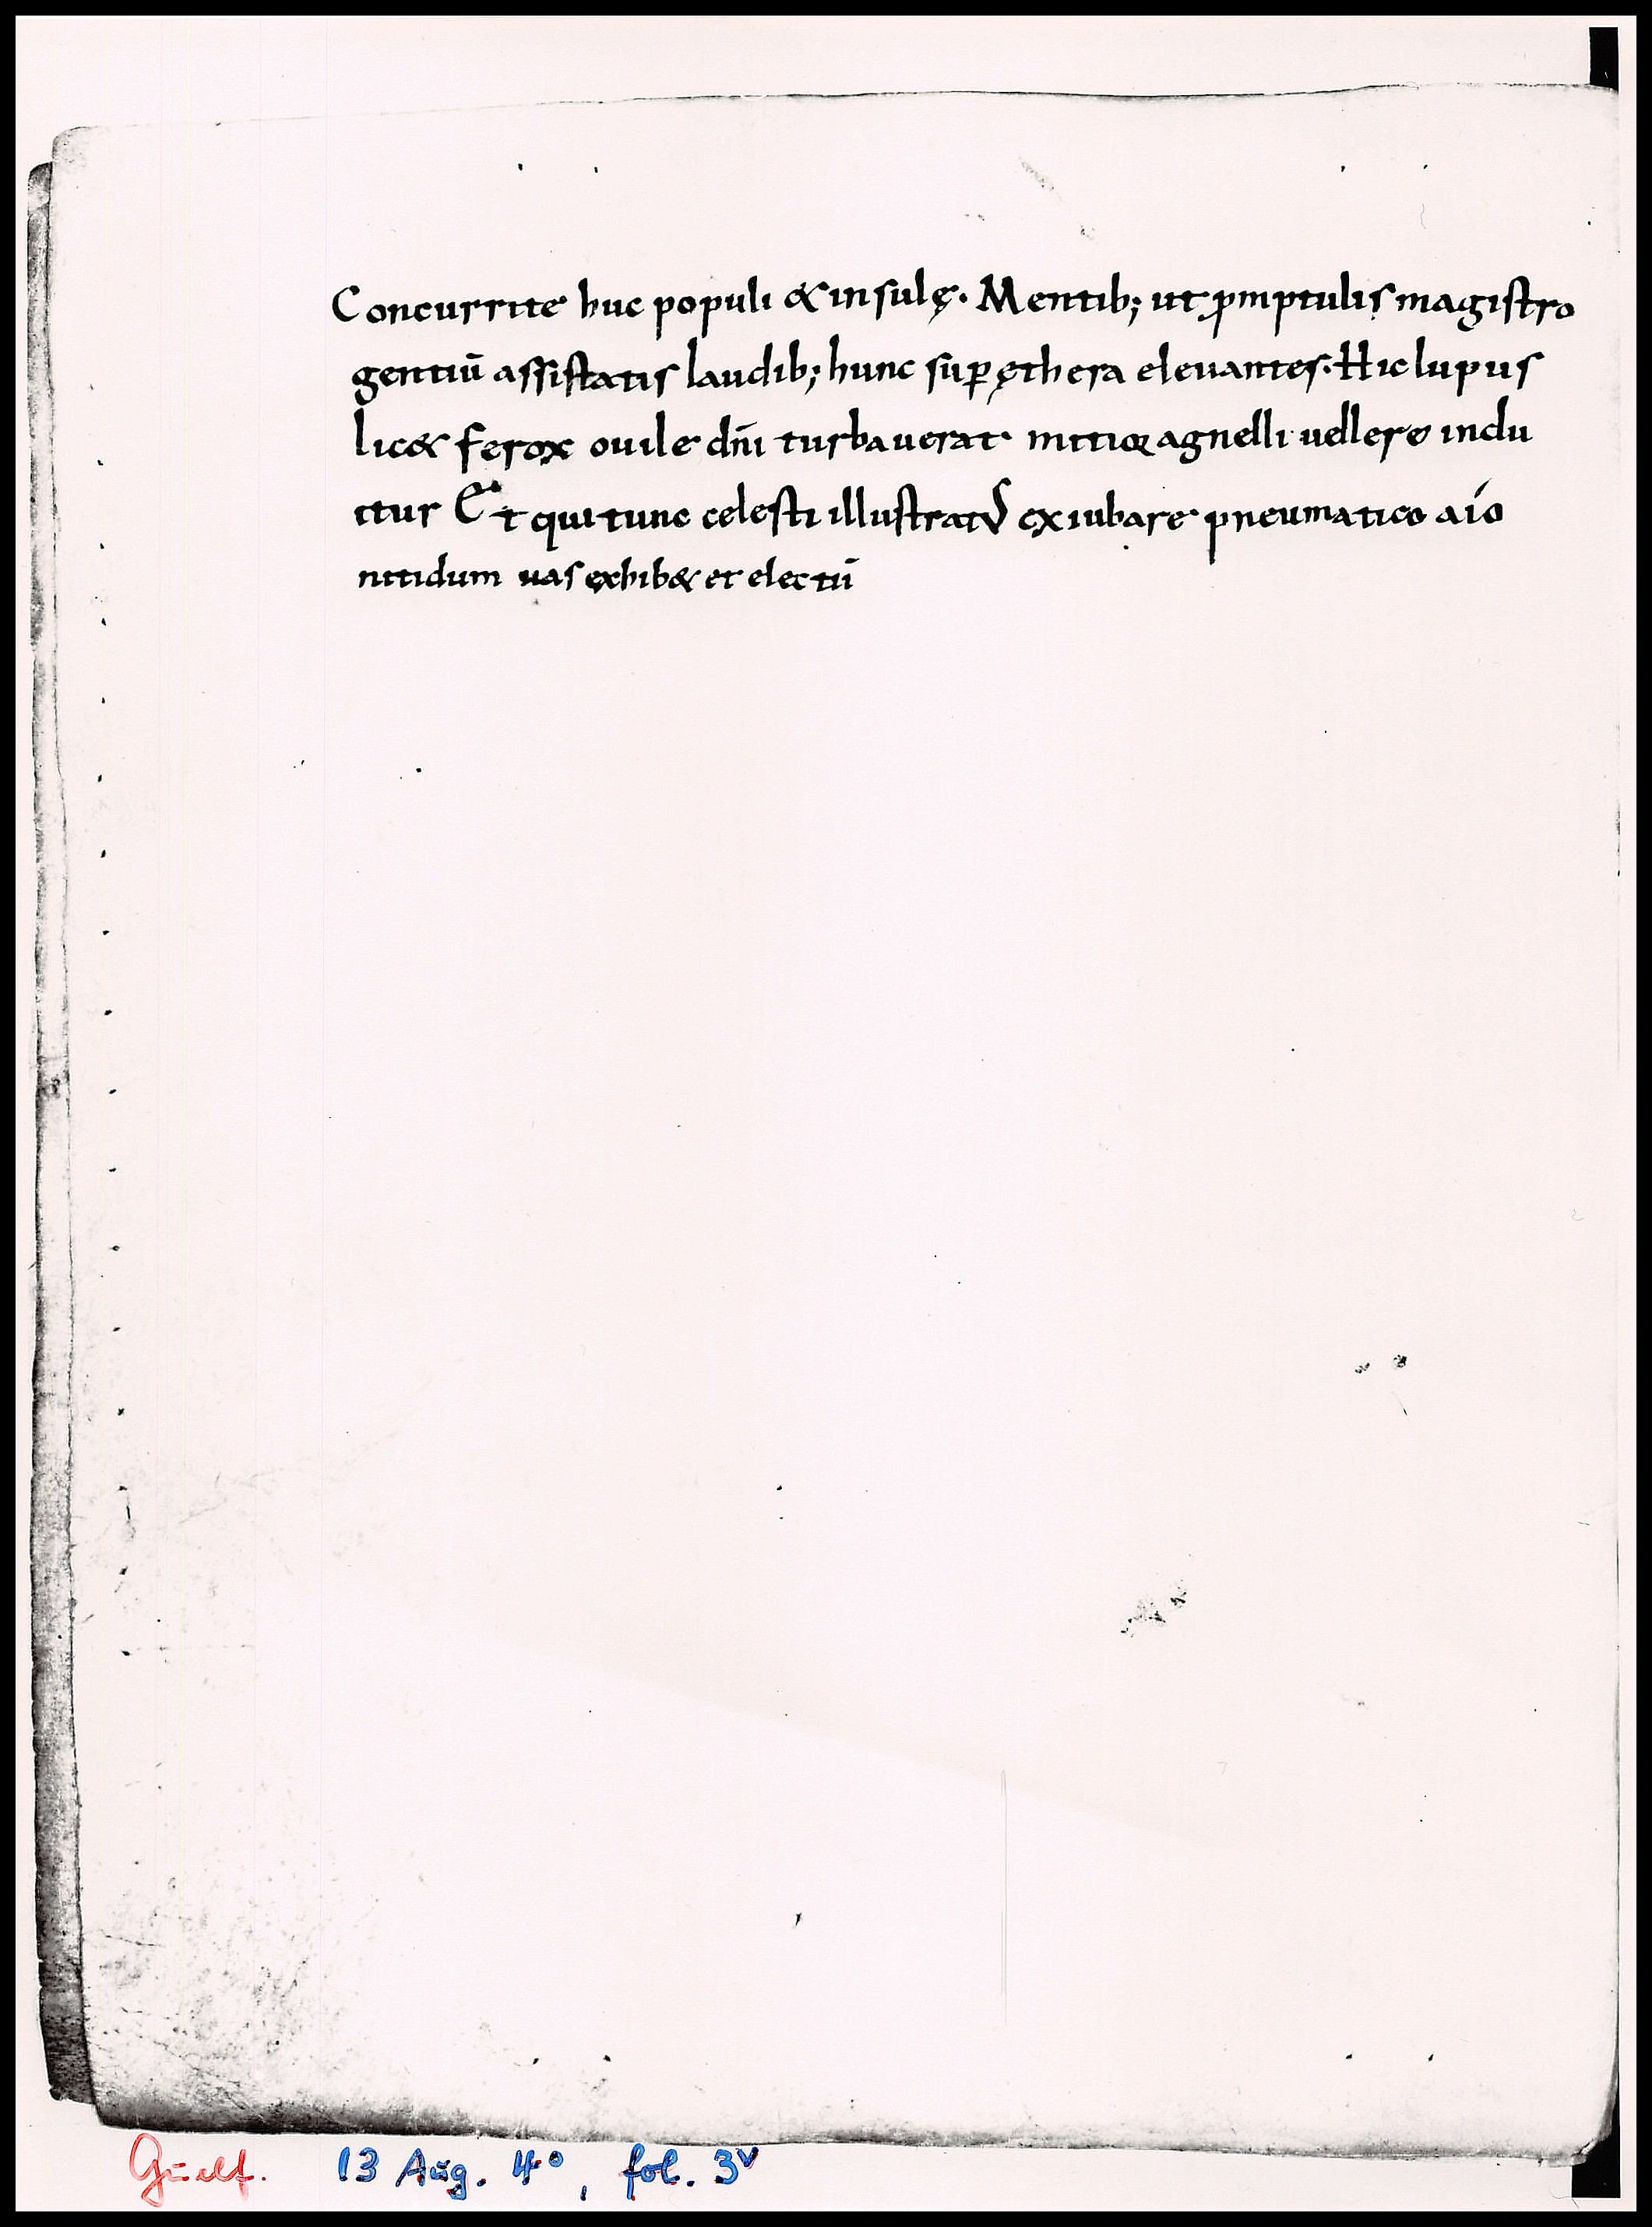 Concurrite huc populi & insulę. Mentib; ut p̱mptulis magistro
gentiū assistatis laudib; hunc sup̱ ęthera eleuantes. Hic lupus
lic& ferox ouile dn̄i turbauerat mitiq; agnelli uellere indu
itur Et qui tunc celesti illustratꝰ ex iubare pneumatico aīo
nitidum uas exhib& et electū
Guelf. 13 Aug. 4°, fol. 3v